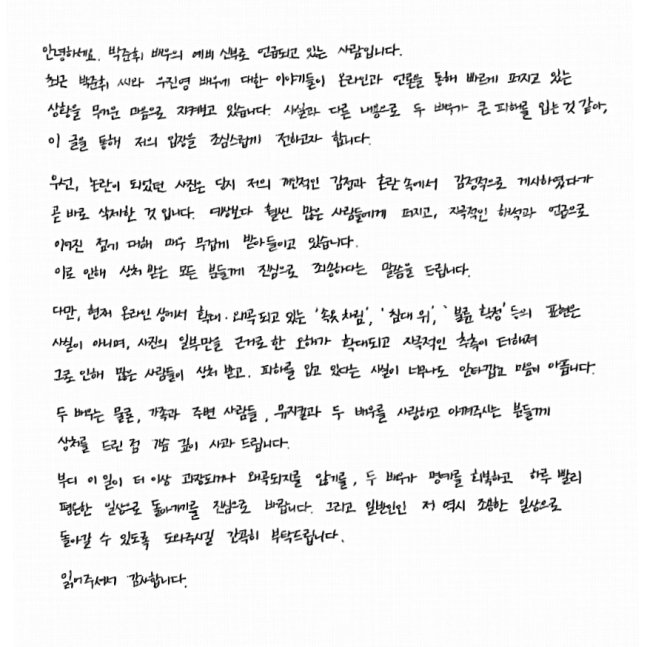 안녕하세요. 박준휘 배우의 예비 신부로 언급되고 있는 사람입니다.
최근 박준휘 씨와 우진영 배우에 대한 이야기들이 온라인과 언론을 통해 빠르게 퍼지고 있는
상황을 무거운 마음으로 지켜보고 있습니다. 사실과 다른 내용으로 두 배우가 큰 피해를 입는 것 같아,
이 글을 통해 저의 입장을 조심스럽게 전하고자 합니다.
우선, 논란이 되었던 사진은 당시 저의 개인적인 감정과 혼란 속에서 감정적으로 게시하였다가
곧 바로 삭제한 것 입니다. 예상보다 훨씬 많은 사람들에게 퍼지고, 자극적인 해석과 언급으로
이어진 점에 대해 매우 무겁게 받아들이고 있습니다.
이로 인해 상처 받은 모든 분들께 진심으로 죄송하다는 말씀을 드립니다.
다만, 현재 온라인 상에서 확대·왜곡되고 있는 '속옷 차림', '침대 위', '불륜 확정' 등의 표현은
사실이 아니며, 사진의 일부만을 근거로 한 오해가 확대되고 자극적인 추측이 더해져
그로 인해 많은 사람들이 상처 받고, 피해를 입고 있다는 사실이 너무나도 안타깝고 마음이 아픕니다.
두 배우는 물론, 가족과 주변 사람들, 뮤지컬과 두 배우를 사랑하고 아껴주시는 분들께
상처를 드린 점 가슴 깊이 사과 드립니다.
부디 이 일이 더 이상 과장되거나 왜곡되지를 않기를, 두 배우가 명예를 회복하고 하루 빨리
평온한 일상으로 돌아가기를 진심으로 바랍니다. 그리고 일반인인 저 역시 조용한 일상으로
돌아갈 수 있도록 도와주시길 간곡히 부탁드립니다.
읽어주셔서 감사합니다.